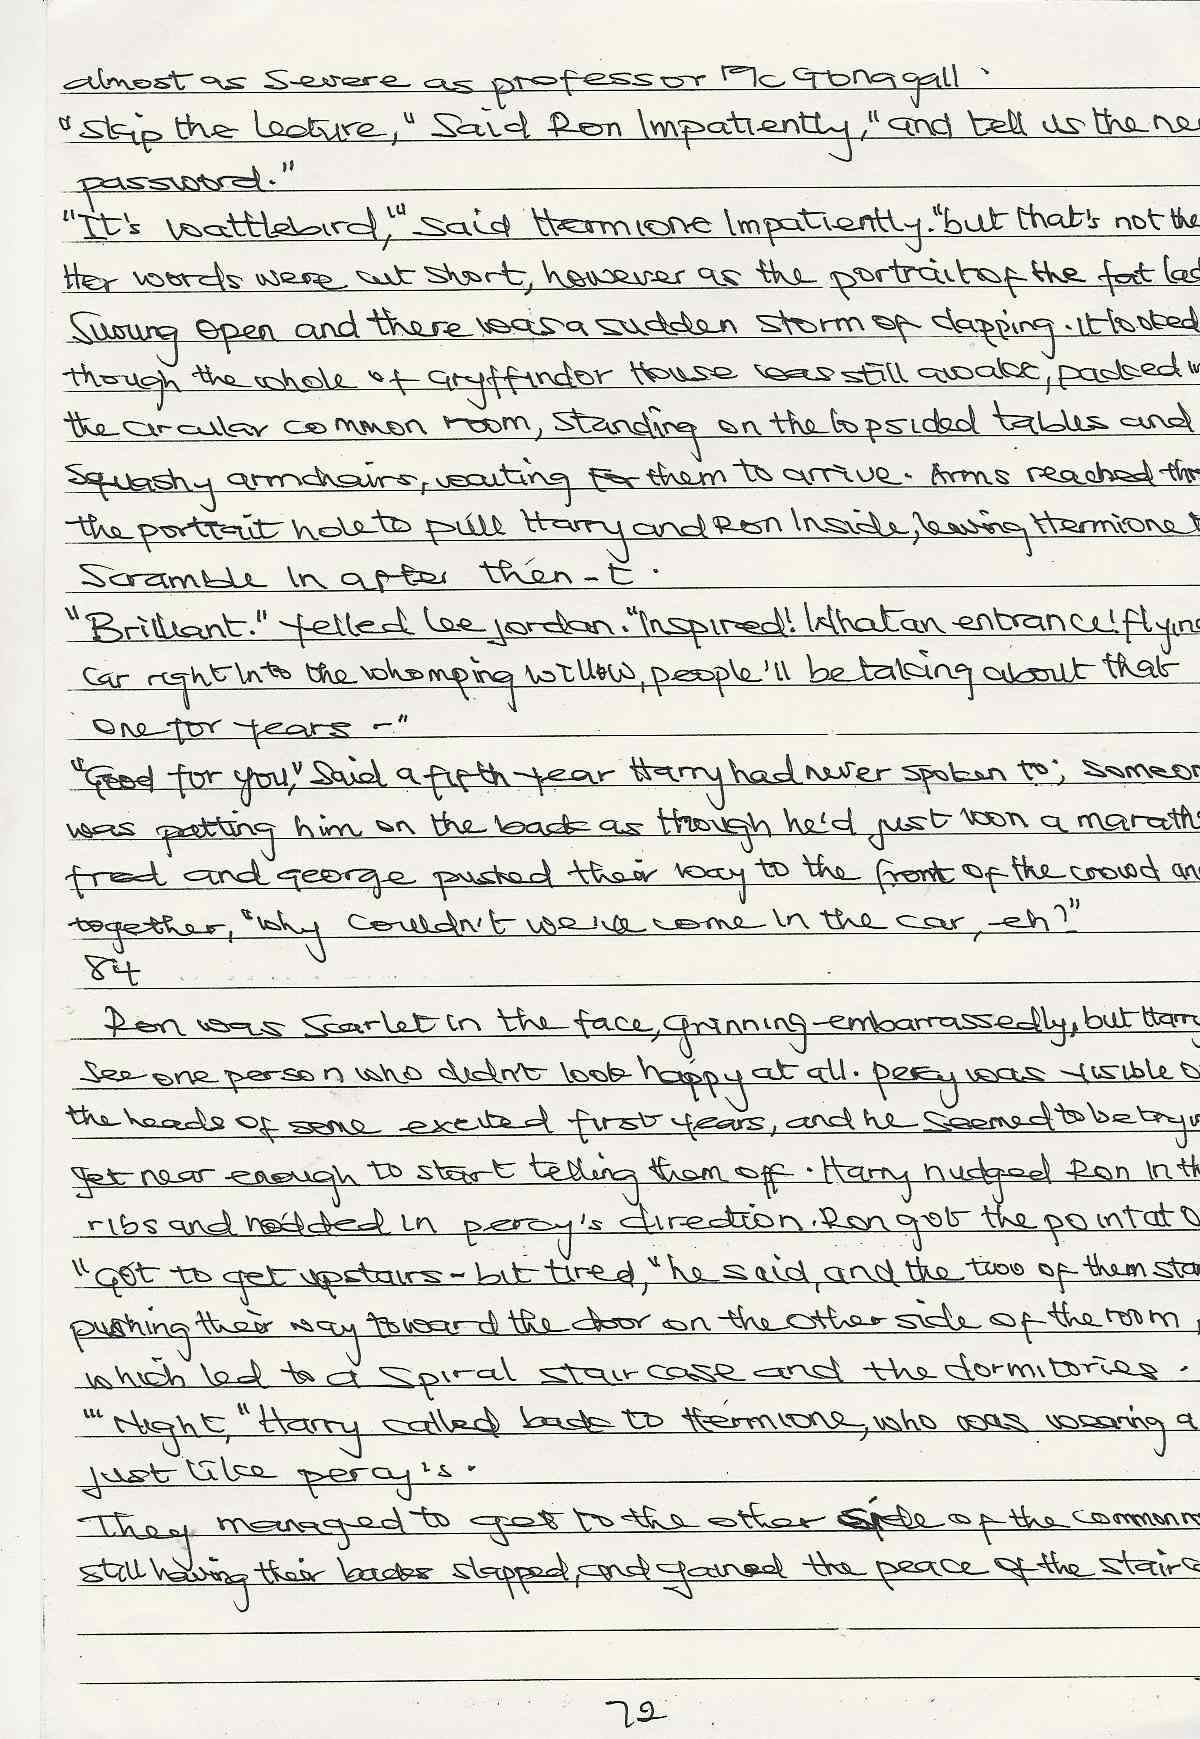 almost as severe as professor McGonagall.
"Skip the lecture," Said Ron Impatiently, "and tell us the ne
password."
"It's wattlebird," said Hermione Impatiently. "but that's not the
Her words were cut short, however as the portrait of the fat lad
Swung open and there was a sudden storm of clapping. it looked
though the whole of Gryffindor House was still awake, packed in
the circular common room, standing on the lopsided tables and
squashy armchairs, waiting for them to arrive. Arms reached thr
the portrait hole to pull Harry and Ron Inside, leaving Hermione t
Scramble In after then-t.
"Brilliant." yelled Lee jordan. "Inspired! What an entrance! flying
car right Into the whomping willow, people'll be talking about that
one for years -"
"Good for you," Said a fifth year Harry had never spoken to; someon
was patting him on the back as though he'd just won a marath
fred and george pushed their way to the front of the crowd an
together, "why couldn't we've come in the car, eh?"
84
Ron was scarlet in the face, grinning embarrassedly, but Harry
see one person who didn't look happy at all. percy was visible o
the heads of some excited first years, and he seemed to be tryin
get near enough to start telling them off. Harry nudged Ron in th
ribs and nodded in percy's direction. Ron got the point at o
"Got to get upstairs - bit tired," he said, and the two of them star
pushing their way toward the door on the other side of the room,
which led to a spiral staircase and the dormitories.
"'Night," Harry called back to Hermione, who was wearing a
just like percy's.
They managed to get to the other side of the common r
still having their backs slapped, and gained the peace of the stairca
72